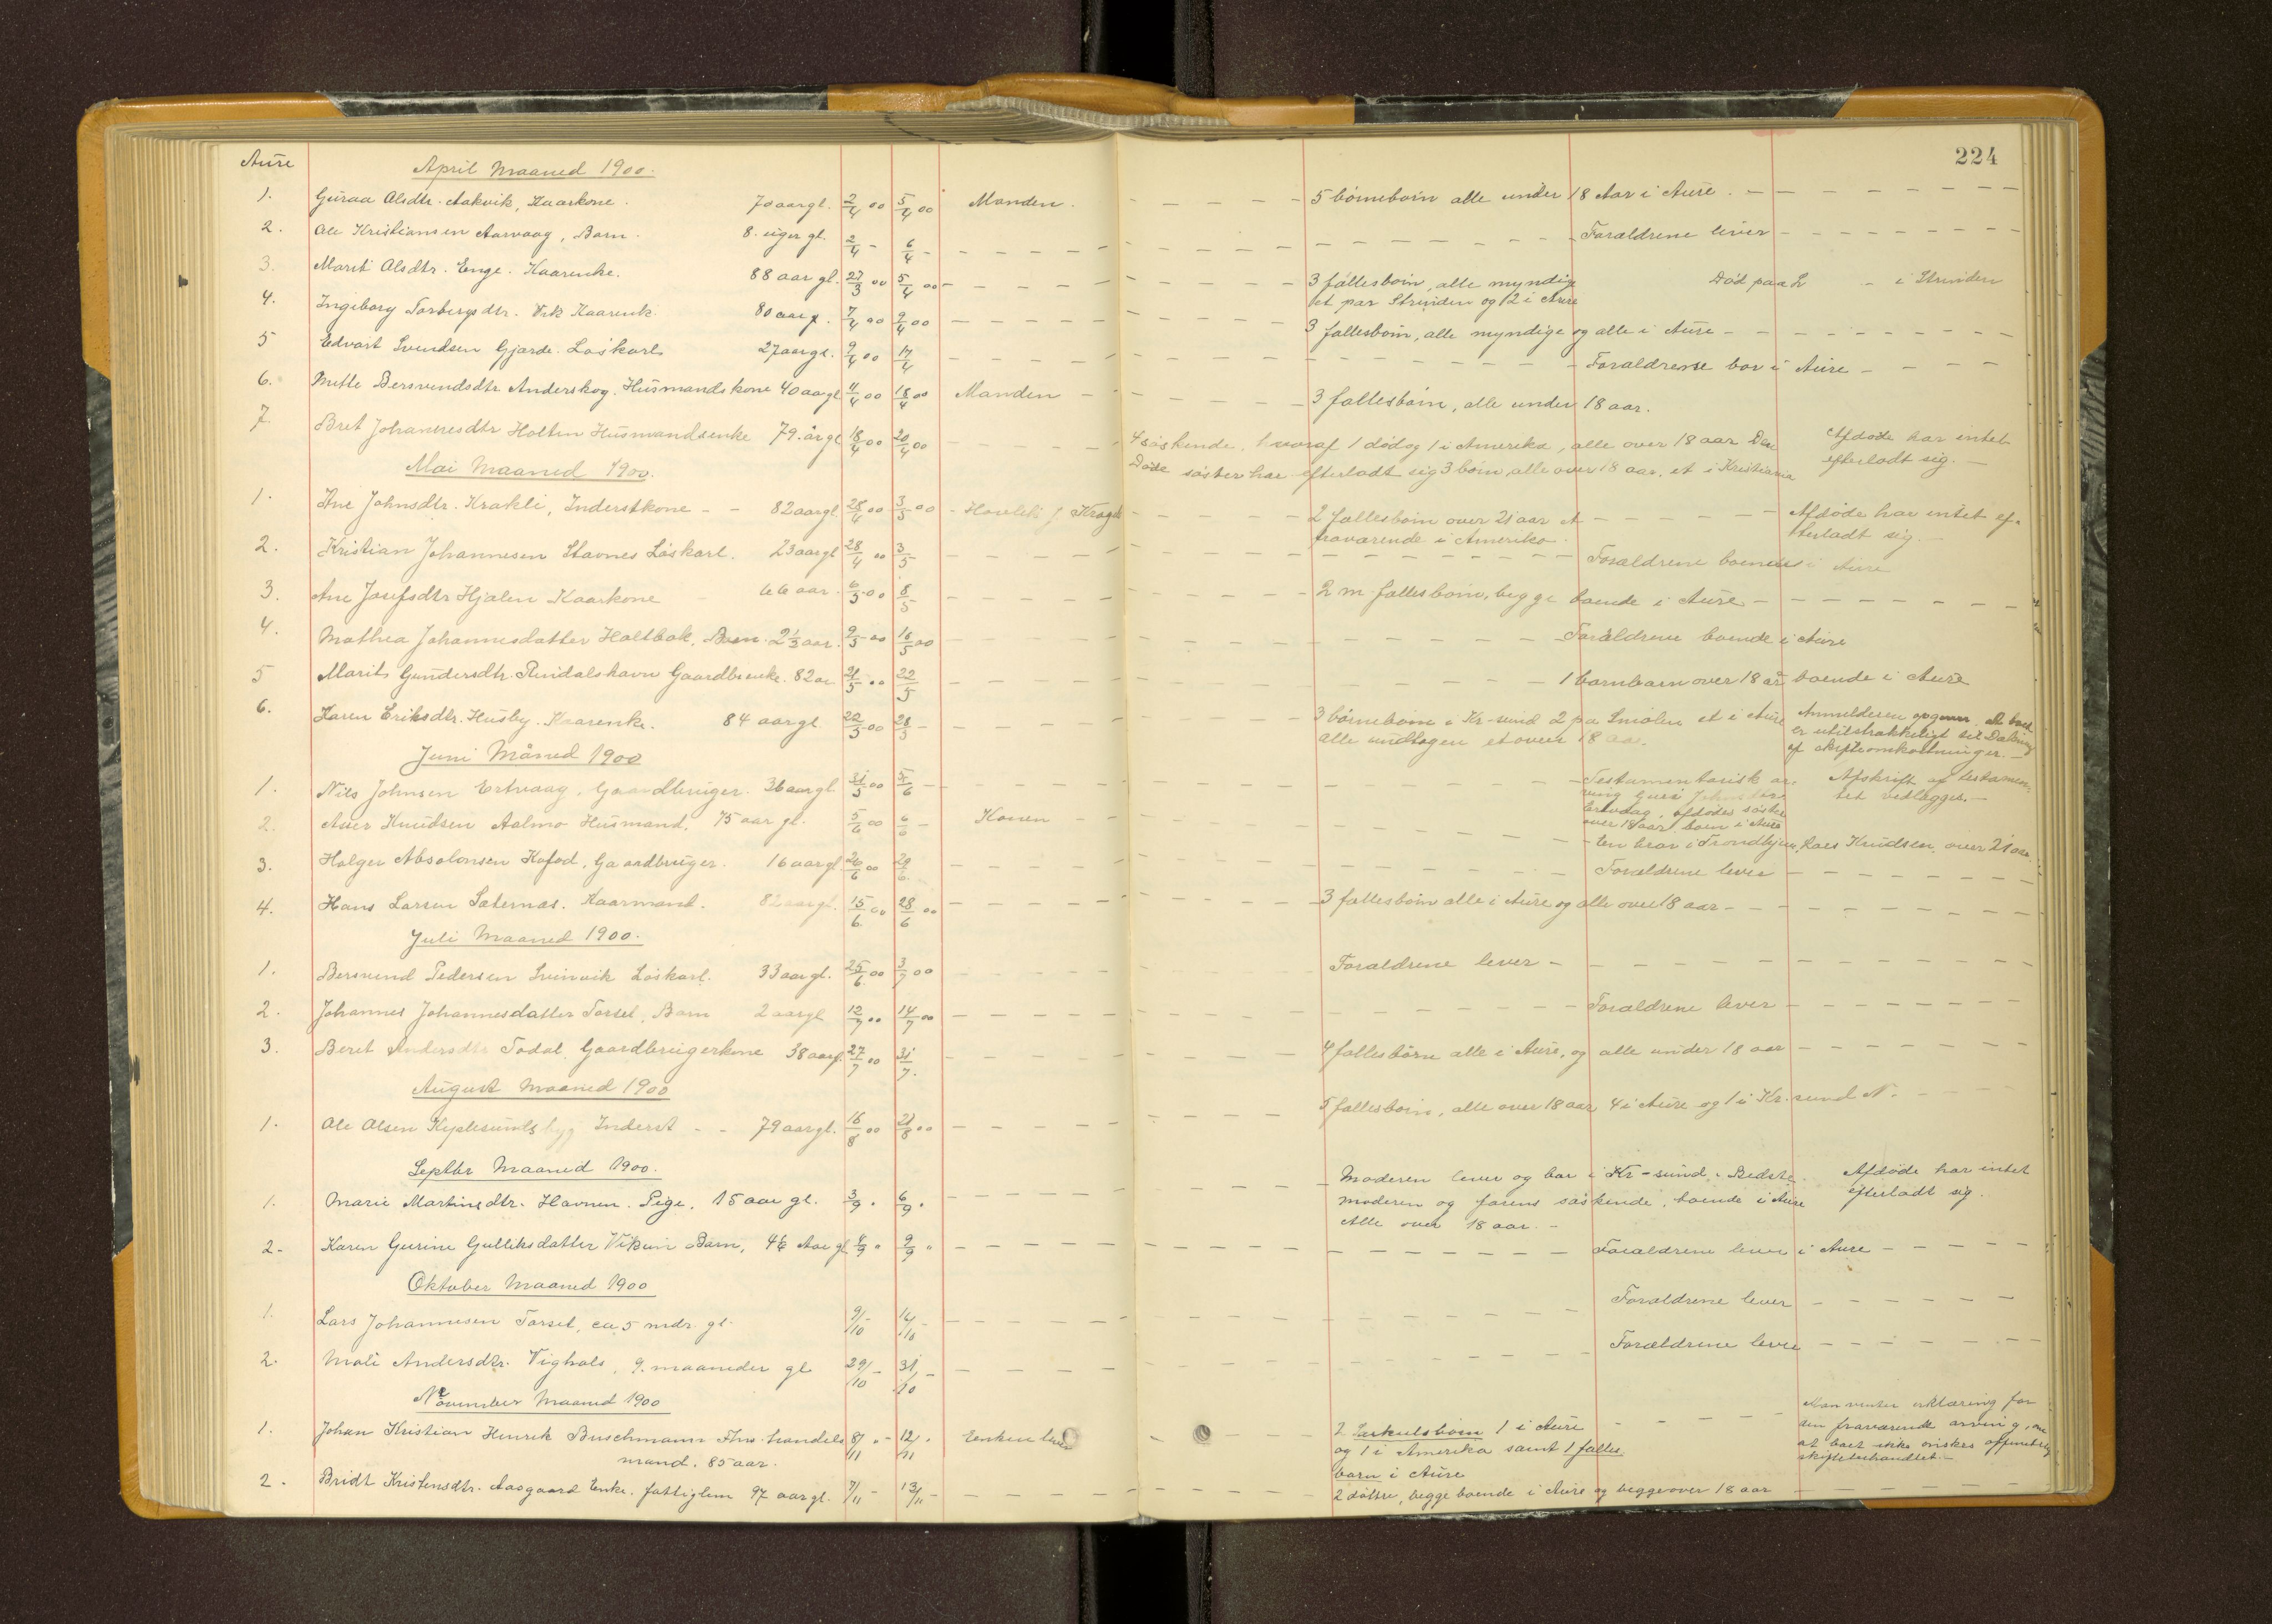 Aure
224
April Maaned 1900.
1. Guraa Olsdtr. Aakvik, Kaarkone. 70 aar gl. 2/4 00 5/4 00 Manden. 5 børnebørn alle under 18 Aar i Aure.
2. Ole Kristiansen Aarvaag, Barn. 8. uger gl. 2/4 - 6/4 - Forældrene lever
3. Marit Olsdtr. Enge. Kaarenke. 88 aar gl. 27/3 00 5/4 00 3 fællesbørn, alle myndige Død paa i Strinden
et par Strinden og 2 i Aure
4. Ingeborg Torbergsdtr. Vik Kaarenk. 80 aar g. 7/4 00 9/4 00 3 fællesbørn, alle myndige og alle i Aure
5 Edvart Svendsen Gjærde. Løskarl 27 aar gl. 9/4 00 17/4 Forældrene bor i Aure
6. Mette Bersvendsdtr Anderskog. Husmandskone 40 aar gl 11/4 00 18/4 00 Manden 3 fællesbørn, alle under 18 aar.
7. Bret Johannesdtr Holten Husmandsenke 79. år gl 18/4 00 20/4 00 4 søskende, hvoraf 1 død og 1 i Amerika, alle over 18 aar Den Afdøde har intet
Døde søster har efterladt sig 3 børn, alle over 18 aar, et i Kristiania efterladt sig.
Mai Maaned 1900.
1. Ane Johnsdtr. Krakli, Inderstkone 82 aar gl. 28/4 00 3/5 00 2 fællesbørn over 21 aar et Afdøde har intet ef-
fraværende i Amerika. terladt sig.
2. Kristian Johannesen Stavnes Løskarl. 23 aar gl 28/4 00 3/5 Forældrene boende i Aure
3. Ane Josefsdtr Hjælen Kaarkone 66 aar. 6/5 00 8/5 2 m. fællesbørn, begge boende i Aure
4. Mathea Johannesdatter Holtbak, Barn. 2 1/3 aar. 9/5 00 16/5 00 Forældrene boende i Aure
5 Marit Gundersdtr. Rindalshavn Gaardbrenke. 82 aa 21/5 00 22/5 1 barnebarn over 18 år boende i Aure
6. Karen Eriksdtr. Husby. Kaarenke. 84 aar gl. 22/5 00 28/5 - 3 børnebørn i Kr-sund 2 pa Smølen et i Aure Anmelderen opgiver, at boet
alle undtagen et over 18 aar. er utilstrækkeligt til Dækning
af skifteomkostninger.
Juni Måned 1900
1. Nils Johnsen Ertvaag, Gaardbruger. 36 aar gl 31/5 00 5/6 Testamentarisk ar- Afskrift af testamen-
ving Guri tet vedlægges.
Ertvaag, afdødes søster
over 18 aar boen i Aure
2. Knudsen Aalmo Husmand. 75 aar gl. 5/6 00 6/6 Konen - en bror i Trondhjem, Lars Knudsen, over 21 aar.
3. Holger Absolonsen Kofod, Gaardbruger. 16 aar gl 26/6 00 29/6. Forældrene lever
4. Hans Larsen Sæternæs. Kaarmand. 82 aar gl. 15/6 00 28/6 00 3 fællesbørn alle i Aure og alle over 18 aar
Juli Maaned 1900.
1. Bersvend Pedersen Svinvik Løskarl. 33 aar gl. 25/6 00 3/7 00 Forældrene lever
2. Johannes Johannesdatter Torset, Barn 2 aar gl 12/7 00 14/7 00 Forældrene lever
3. Beret Andersdtr Todal. Gaardbrugerkone 38 aar g. 27/7 00 31/7. 4 fællesbørn alle i Aure, og alle under 18 aar
August Maaned 1900
1. Ole Olsen Kjelesundsbyg Inderst 79 aar gl. 16/8 00 21/8 00 5 fællesbørn, alle over 18 aar 4 i Aure og 1 i Kr. sund N.
Septbr Maaned 1900.
1. Marie Martinsdtr. Havnen. Pige. 15 aar gl. 3/9 6/9 Moderen lever og bor i Kr-sund. Bedste- Afdøde har intet
moderen og farens søskende, boende i Aure efterladt sig.
Alle over 18 aar.
2 - Karen Gurine Gulliksdatter Barn, Aar gl 9/9 Forældrene lever i Aure
Oktober Maaned 1900
1. Lars Johannesen Torset, ca 5 mdr. gl. 9/10 16/10 Forældrene lever
2. Mali Andersdtr. Vighals, 9. maaneder gl 29/10 31/10 Forældrene lever
November Maaned 1900
1. Johan Kristian Henrik Buschmann Fhv. handels 8/11 12/11 Enken lever 2 særkulsbørn 1 i Aure Kan venter erklæring for
mand. 85 aar. og 1 i Amerika samt 1 fælles- den fraværende arving, om
barn i Aure at boet ikke ønskes offentlig
skiftebehandlet.
2. Bridt Kristensdtr. Aasgaard Enke. fattiglem 97 aar gl. 7/11 13/11 2 døttre, begge boende i Aure og begge over 18 aar